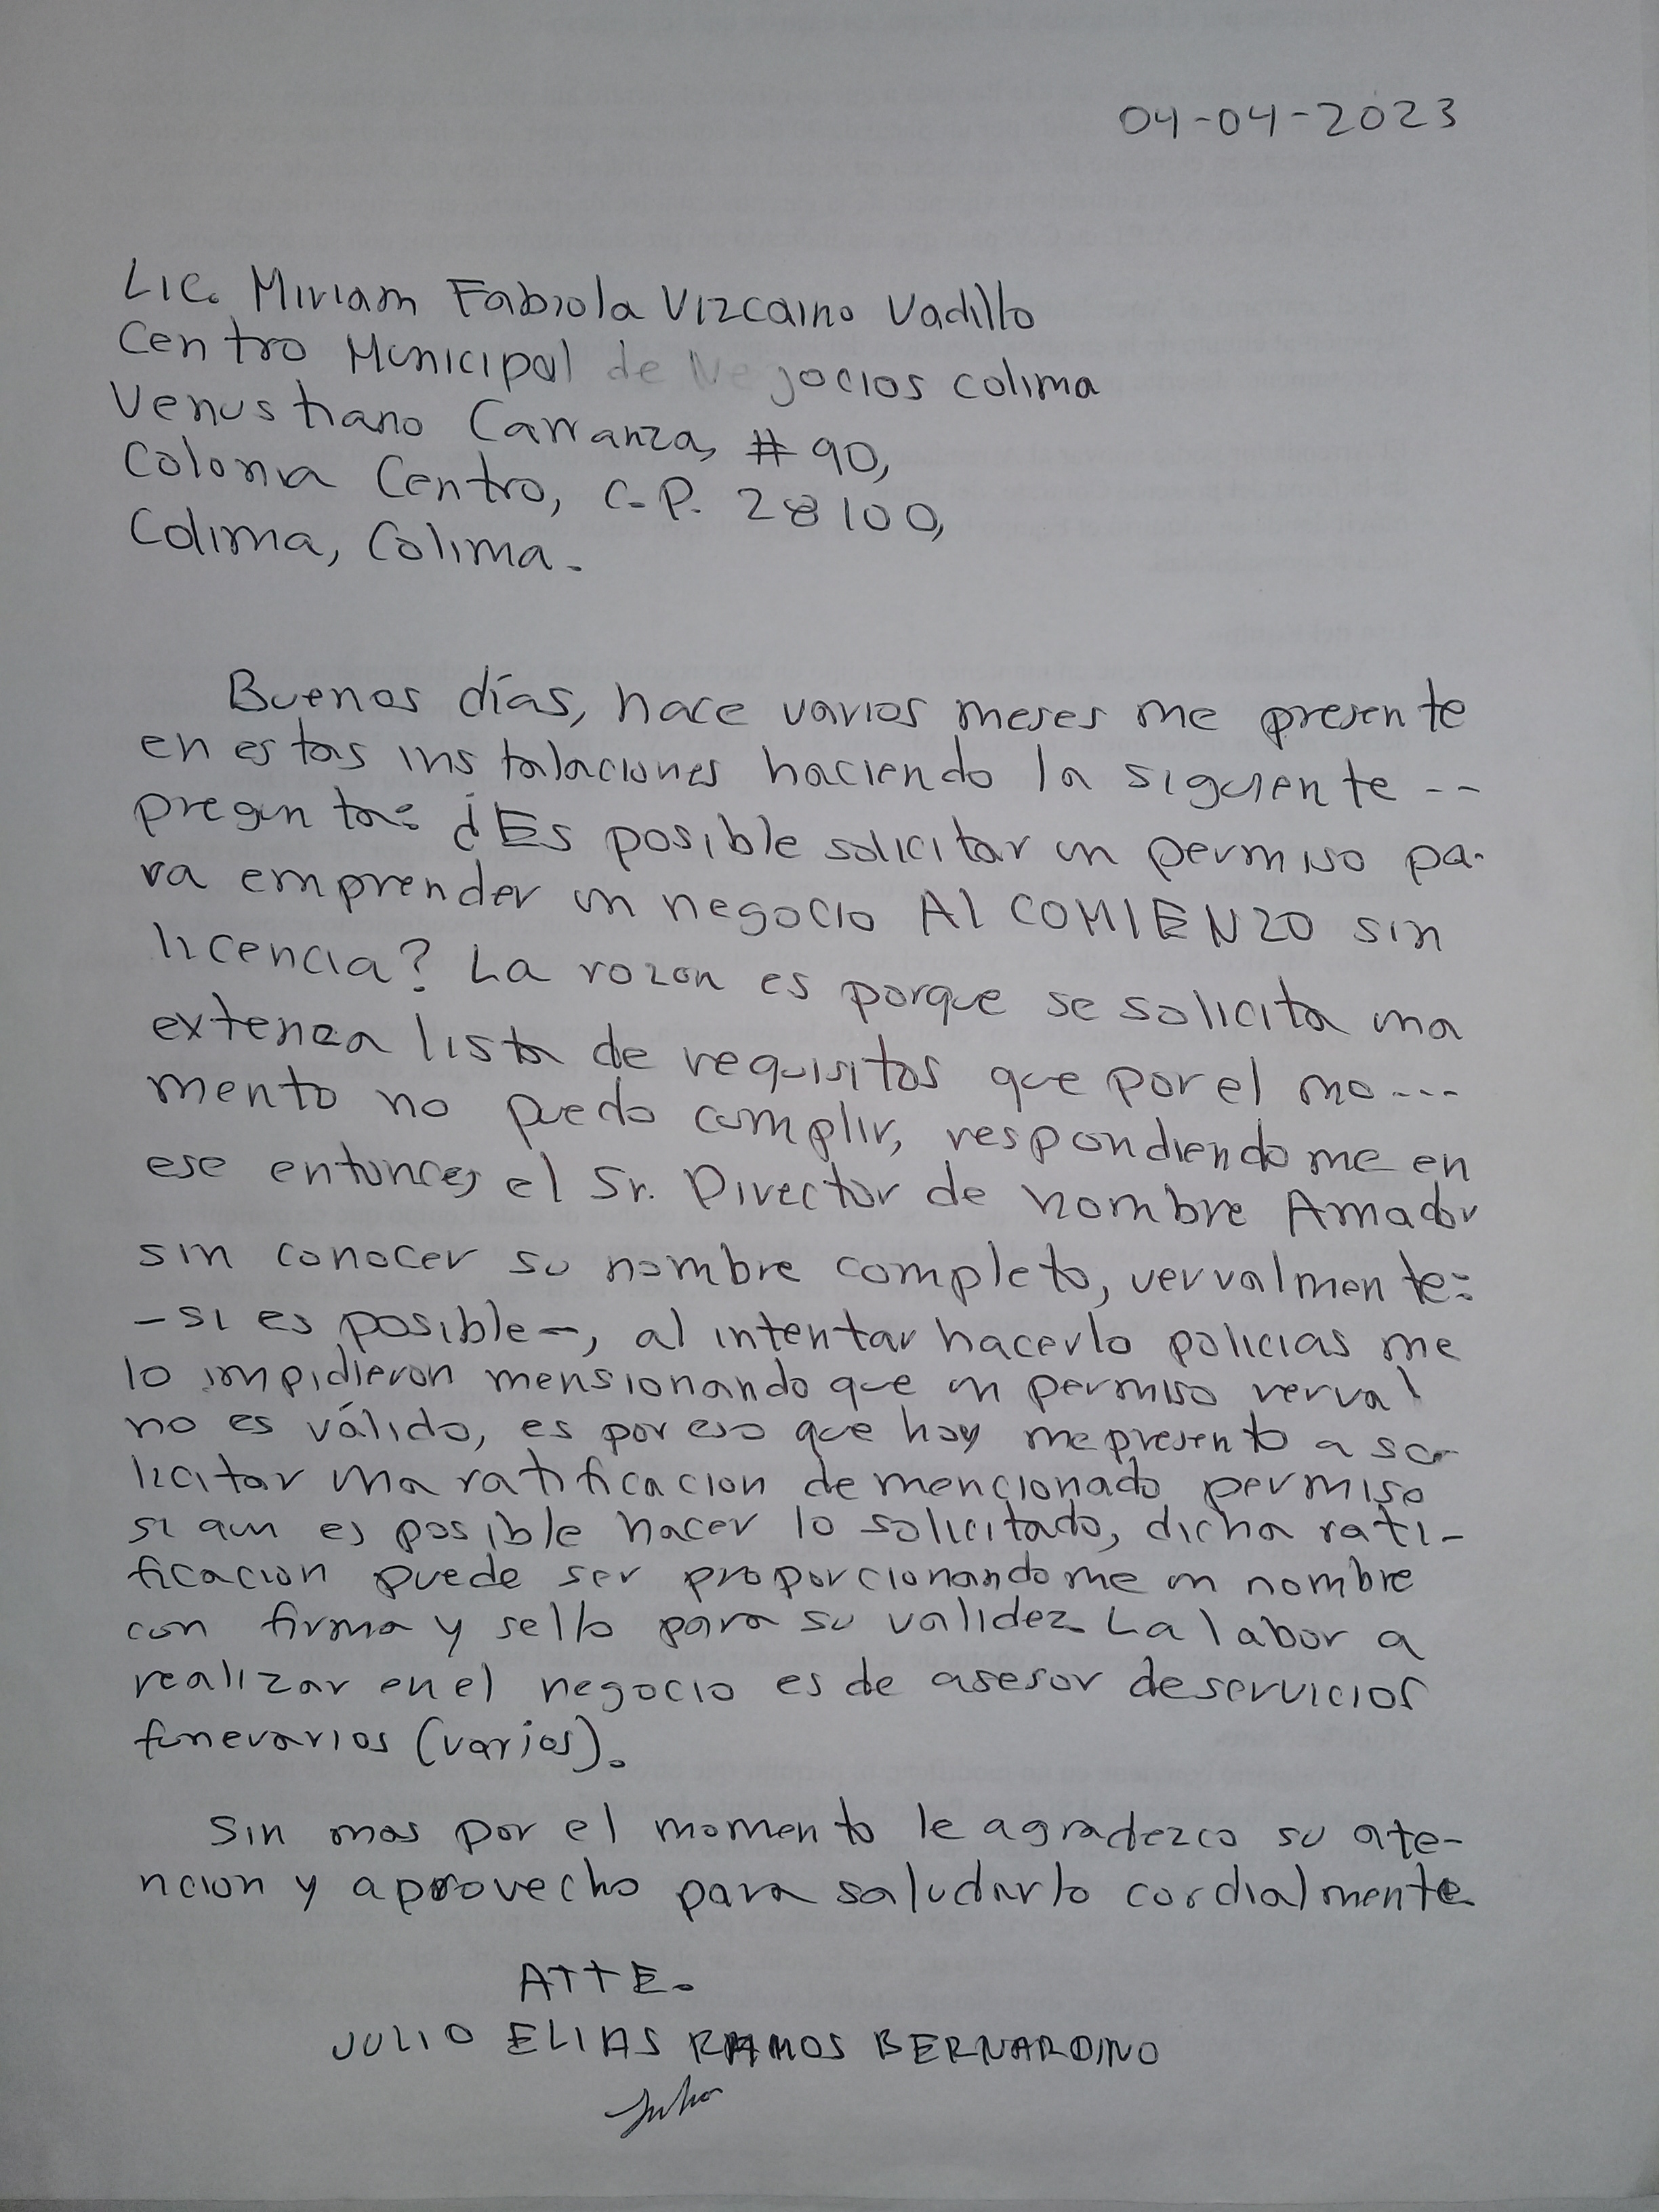 04-04-2023
Lic. Miriam Fabiola Vizcaino Vadillo
Centro Municipal de Negocios colima
Venustiano Carranza, # 90,
Colonia Centro, C.P. 28100,
Colima, Colima.
Buenos días, hace varios meses me presente
en estas instalaciones haciendo la siguiente --
pregunta: ¿Es posible solicitar un permiso pa-
ra emprender un negocio Al COMIENZO sin
licencia? La razon es porque se solicita una
extenza lista de requisitos que por el mo---
mento no puedo cumplir, respondiendome en
ese entonces el Sr. Director de nombre Amador
sin conocer su nombre completo, vervalmente:
-si es posible-, al intentar hacerlo policias me
lo impidieron mensionando que un permiso verval
no es válido, es por eso que hoy me presento a so-
licitar una ratificacion de mencionado permiso
si aun es posible hacer lo solicitado, dicha rati-
ficacion puede ser proporcionandome un nombre
con firma y sello para su validez. La labor a
realizar en el negocio es de asesor de servicios
funerarios (varios).
Sin mas por el momento le agradezco su ate-
ncion y aprovecho para saludarlo cordialmente.
ATTE.
JULIO ELIAS RAMOS BERNARDINO
Julio